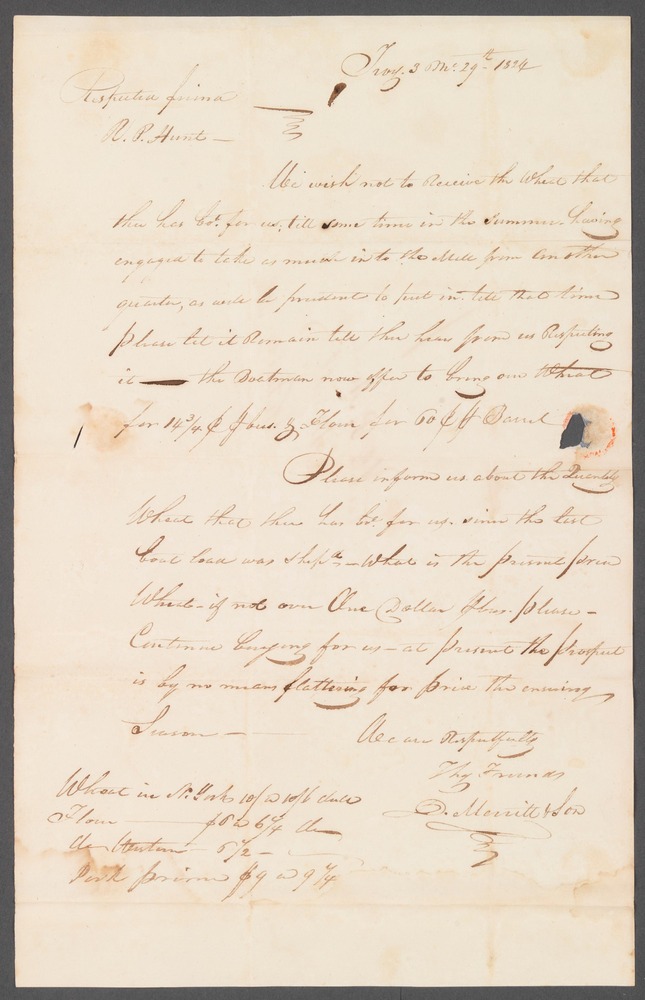 Troy. 3 Mo. 29th 1824
Respected friend
R. P. Hunt —
We wish not to Receive the Wheat that
thee has bo't for us, till some time in the Summer. having
engaged to take as much in to the Mill from another
quarter, as will be prudent to put in till that time
please let it Remain till thee hears from us Respecting
it — the Boatman now offer to bring our Wheat
for 14 3/4 ¢ ℔ bus. & Flour for 60 ¢ ℔ Barrel
Please inform us about the Quantity
Wheat that thee has bo't for us. since the last
boat load was ship'd — What is the present price
Wheat — if not over One Dollar ℔ bus. please —
Continue buying for us — at present the prospect
is by no means flattering for price the ensuing
Season —
We are Respectfully
Thy Friends
D. Merritt & Son
Wheat in N. York 10/ a 10/6 dull
Flour — $6 a 6 1/4 do
do Western 6 1/2 —
Pork prime $9 a 9 1/4